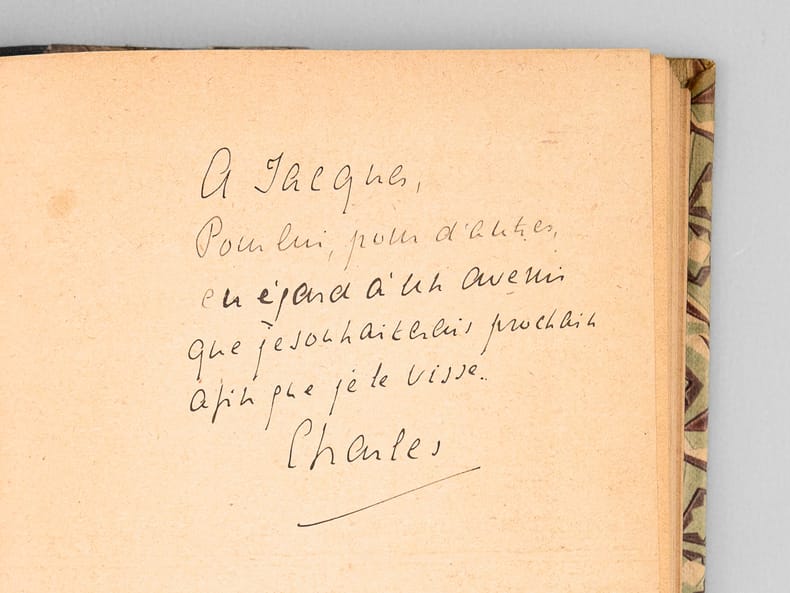 A Jacques,
Pour lui, pour d'autres,
eu égard à un avenir
que je souhaiterais prochain
afin que je le visse.
Charles